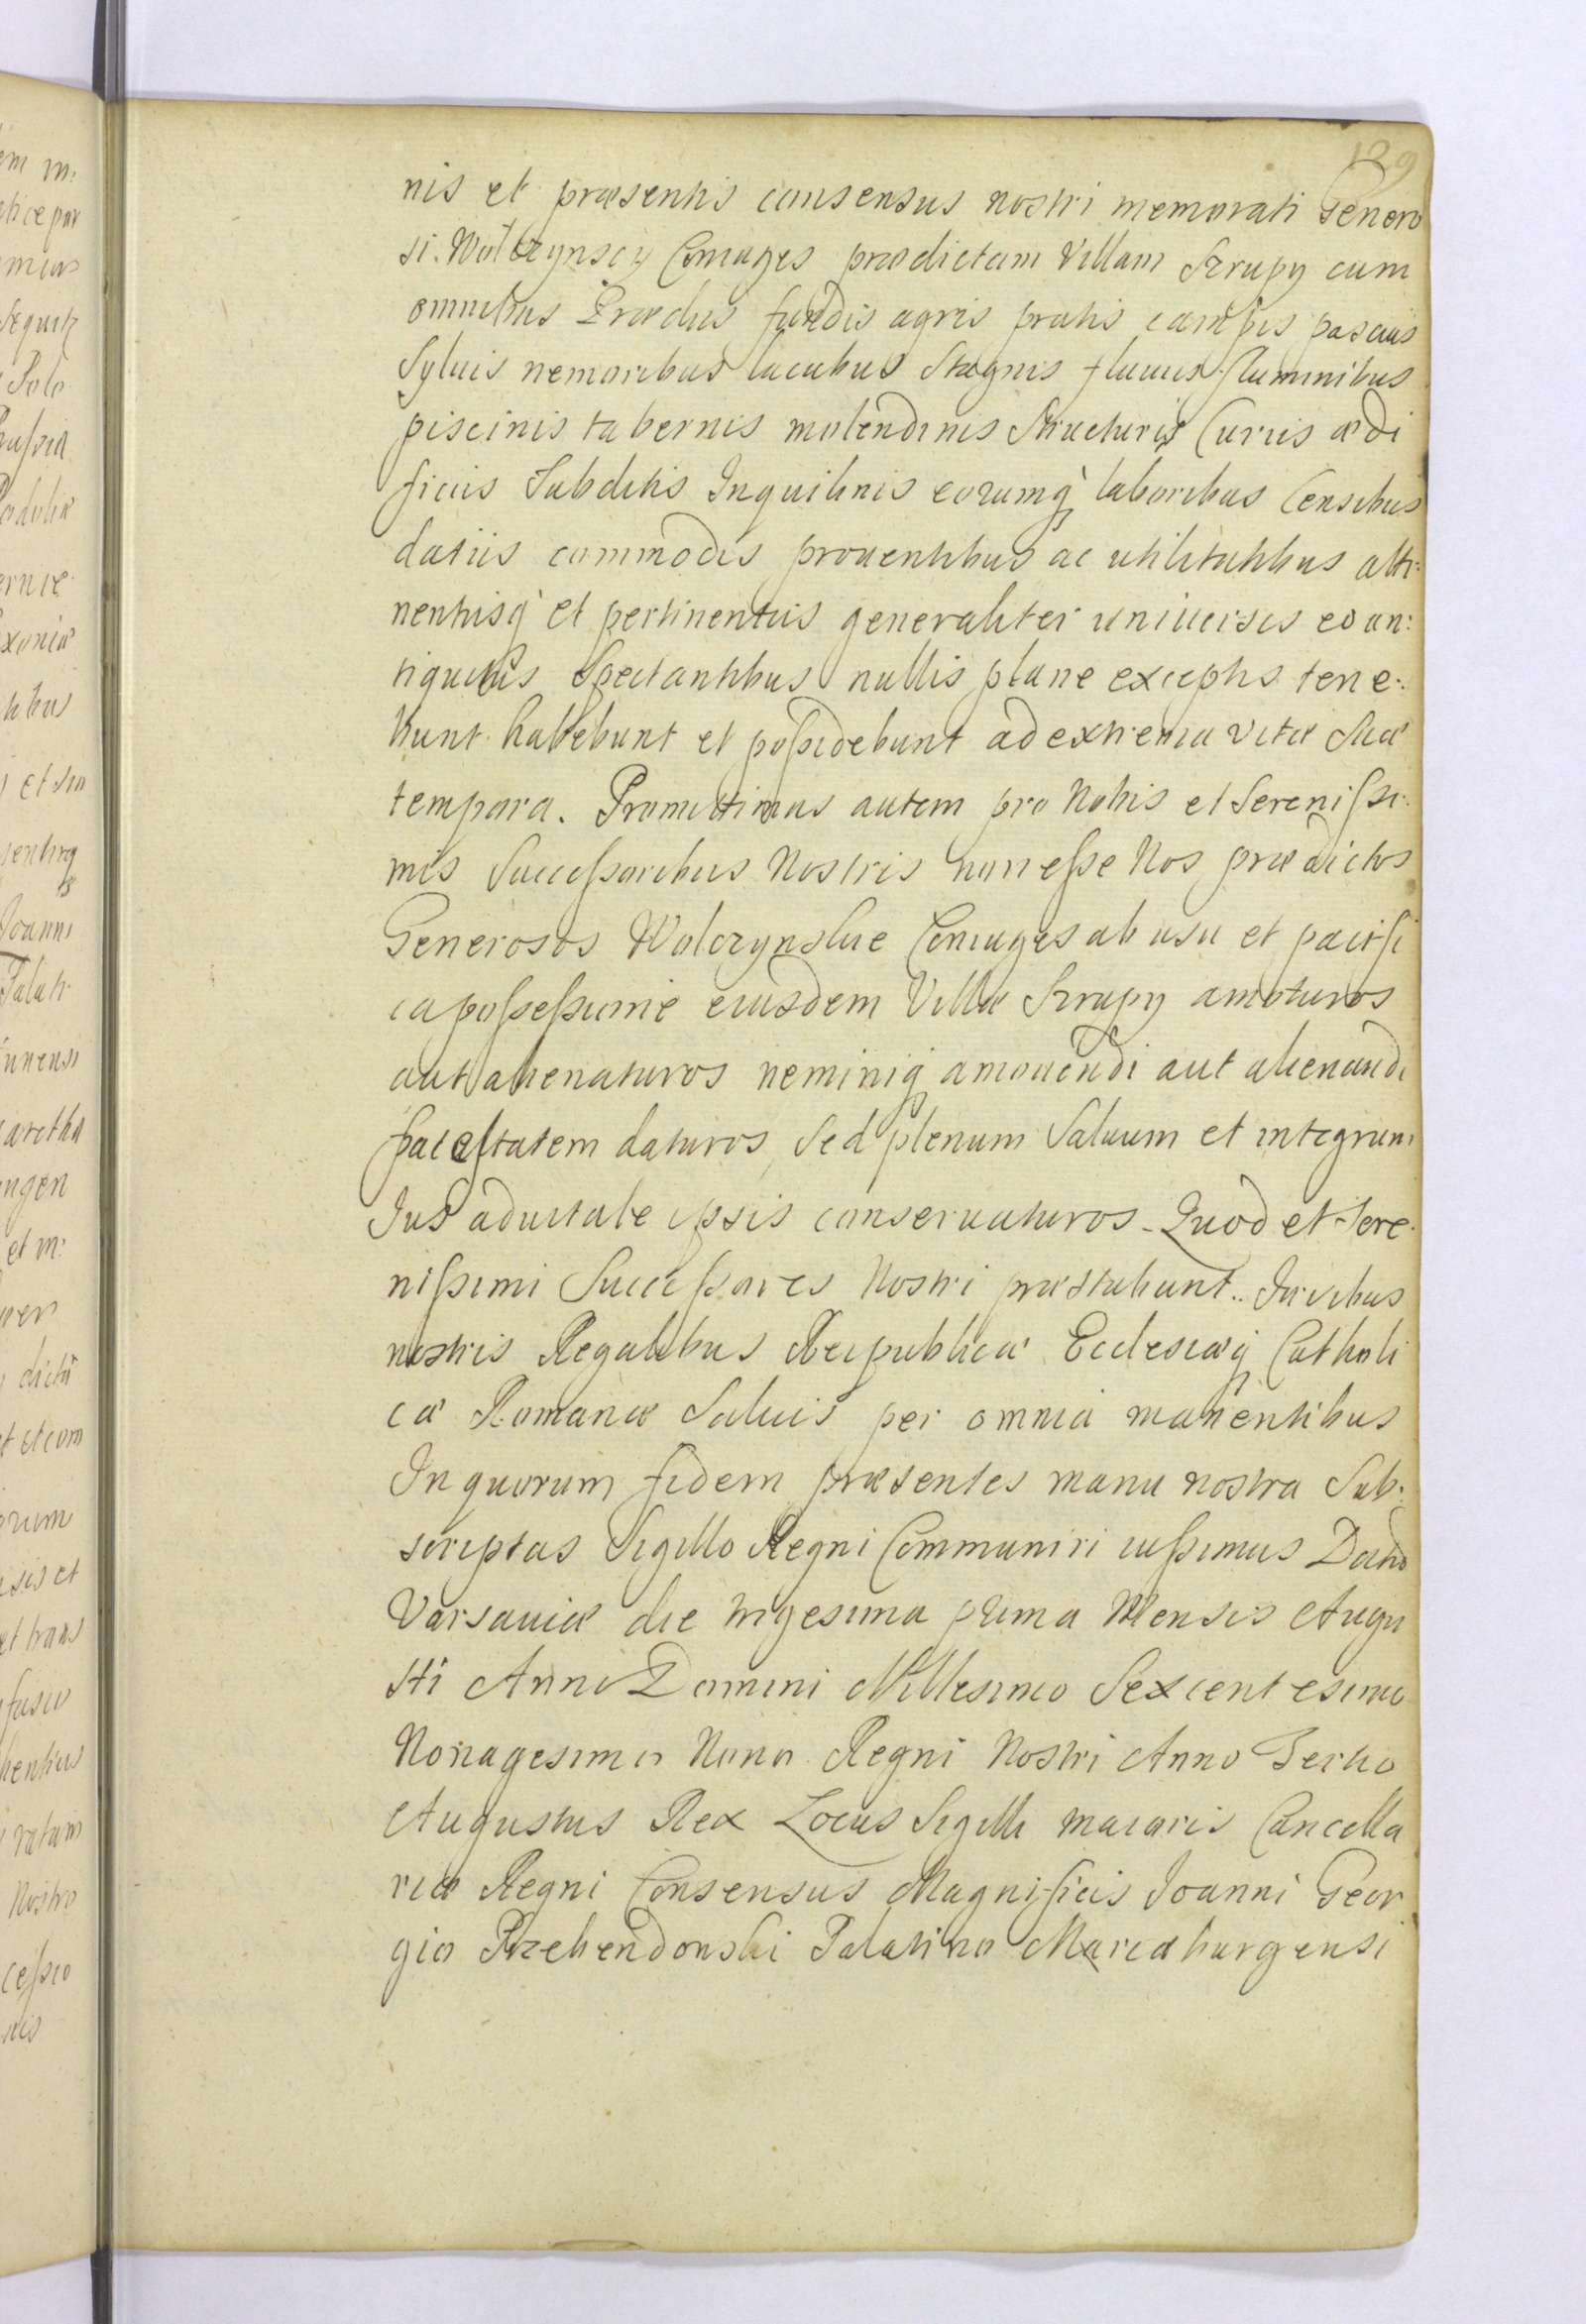 129
nis et præsentis consensus nostri memorati Genero
si Wolczynscy Coniuges prædictam Villam Szrupy cum
omnibus Prædiis fundis agris pratis campis pascuis
Syluis nemoribus lacubus Stagnis fluuiis fluminibus
piscinis tabernis molendinis Structuris Curiis ædi
ficiis Subditis Inquilinis eorumq̀ laboribus Censibus
datiis commodis prouentibus ac utilitatibus atti:
nentiisq̀ et pertinentiis generaliter uniuersis eo an:
tiquitus Spectantibus nullis plane exceptis tene:
bunt habebunt et poſsidebunt ad extrema vitæ Suæ
tempora. Promittimus autem pro Nobis et Sereniſsi:
mis Succeſsoribus Nostris non eſse Nos prædictos
Generosos Wolczynskie Coniuges ab usu et pacifi
ca poſseſsione eiusdem Villæ Szrupy amoturos
aut alienaturos neminiq̀ amouendi aut alienandi
potestatem daturos, Sed plenum Saluum et integrum
Jus aduitale ipsis conseruaturos. Quod et Sere
niſsimi Succeſsores Nostri præstabunt. Iuribus
nostris Regalibus Reipublicæ Ecclesiæq̀ Catholi
cæ Romanæ Saluis per omnia manentibus
In quorum fidem præsentes manu nostra Sub:
scriptas Sigillo Regni Communiri iuſsimus Datto
Varsauiæ die trigesima prima Mensis Augu
sti Anno Domini Millesimo Sexcentesimo
Nonagesimo Nono Regni Nostri Anno Tertio
Augustus Rex Locus Sigilli maioris Cancella
riæ Regni Consensus Magnificis Joanni Geor
gio Przebendonski Palatino Mariæburgensi